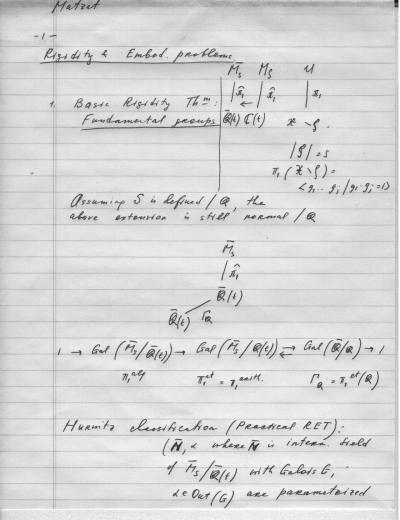 Matzat
- 1 -
Rigidity & Embed. problems
M̄_S M_S U
| π̂₁ | π̂₁ | π₁
1. Basic Rigidity Thm:
Fundamental groups Q̄(t) ← C(t) X \ S.
|S| = s
π₁(X \ S) =
<g₁... gⱼ | g₁.. gⱼ = 1>
Assuming S is defined / Q, the
above extension is still normal / Q
M̄_S
| π̂₁
Q̄(t)
Q(t) Γ_Q
1 → Gal (M̄_S / Q̄(t)) → Gal (M̄_S / Q(t)) ⇄ Gal (Q̄/Q) → 1
π₁^alg π₁^et = π₁^arith. Γ_Q = π₁^et (Q)
Hurwitz classification (Practical RET):
(N̄, α where N̄ is interm. field
of M̄_S / Q̄(t) with Galois G,
α ∈ Out(G) are parametrized